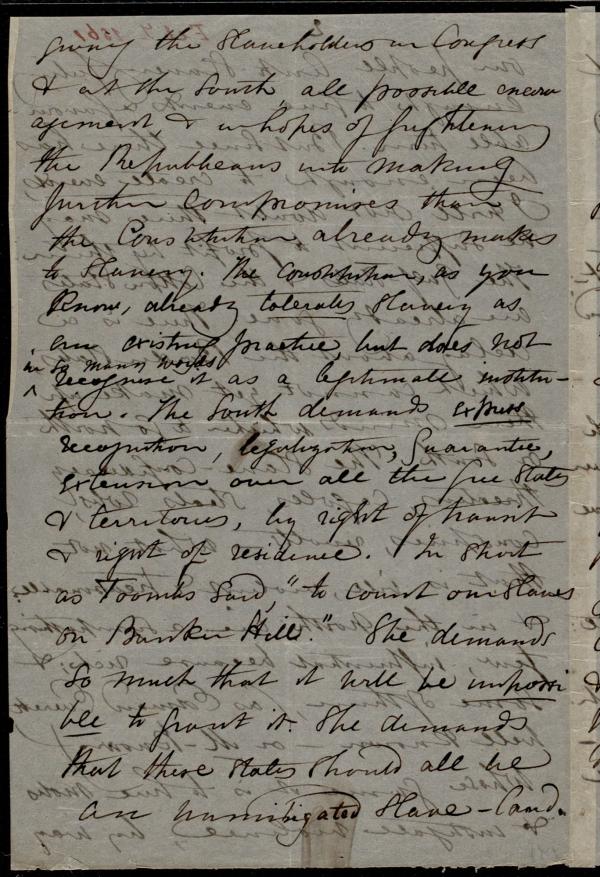 giving the Slaveholders in Congress
& at the South all possible encour
agement, & in hopes of frightening
the Republicans into making
further compromises than
the Constitution already makes
to Slavery. The Constitution, as you
Know, already tolerates Slavery as
an existing practice, but does not
in so many words
recognise it as a legitimate institu-
tion. The South demands express
recognition, legalization, guarantee,
extension over all the free States
& territories, by right of transit
& right of residence. In short
as Toombs said, "to count our Slaves
on Bunker Hill." She demands
so much that it will be impossi
ble to grant it. She demands
that these States should all be
an unmitigated Slave-Land.